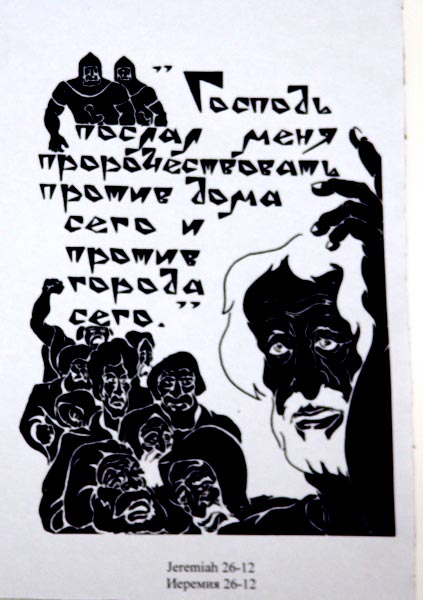 "Господь
послал меня
пророчествовать
против дома
сего и
против
города
сего."
Jeremiah 26-12
Иеремия 26-12